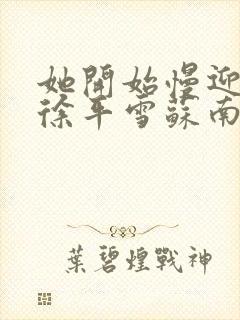 她開始慢迎
徐平雪蘇南
葉碧煌戰神